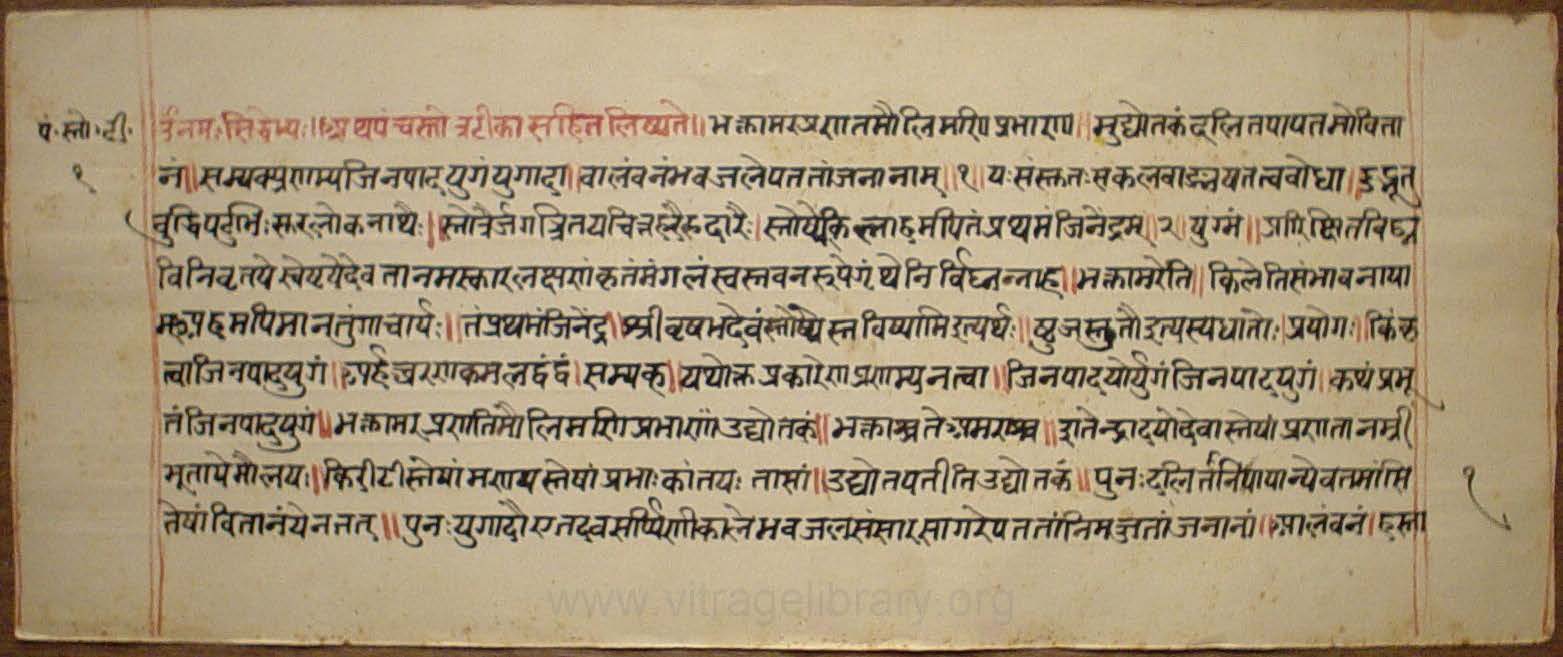 पं॰स्तो॰टी॰
१
उँनमः सिद्धेभ्यः॥अथपंचस्तोत्रटीकासहितलिष्यते॥भक्तामरप्रणतमौलिमणिप्रभाणा॥मुद्योतकंदलितपापतमोविता
नं॥सम्यक्प्रणम्यजिनपादयुगंयुगादा॥वालंवनंभवजलेपततांजनानाम्॥१॥यःसंस्तुतःसकलवाङ्मयतत्ववोधा॥दुद्भूत
वुद्धिपटुभिःसुरलोकनाथैः॥स्तोत्रैर्जगत्त्रितयचित्तहरैरुदारैः॥स्तोष्येकिलाहमपितंप्रथमंजिनेंद्रम्॥२॥युग्मं॥
विनिवृतयेदेवतानमस्कारलक्षणंकृतंमंगलंस्वस्तवनरूपेग्रंथेनिर्विघ्न॥भक्तामरेति॥किलेतिसंभावनाया
अहमपिमानतुंगाचार्यः॥तंप्रथमंजिनेंद्रं॥श्रीवृषभदेवंस्तोष्येस्तविष्यामिइत्यर्थः॥ष्टुञस्तुतौइत्यस्यधातोःप्रयोगः॥किंकृ
त्वाजिनपादयुगं॥अर्हच्चरणकमलद्वंद्वं॥सम्यक्॥यथोक्तप्रकारेणप्रणम्यनत्वा॥जिनपादयोर्युगंजिनपादयुगं॥कथंप्रभू
तंजिनपादयुगं॥भक्तामरप्रणतिमौलिमणिप्रभाणांउद्योतकं॥भक्ताश्चतेअमराश्च॥देवास्तेषांप्रणतानम्री
भूतायेमौलयः॥किरीटीस्तेषांमणयस्तेषांप्रभाःकांतयःतासां॥उद्योतयतीतिउद्योतकं॥पुनःपापान्येवतमांसि
तेषांवितानंयेनतत्॥पुनःयुगादौएतदवसर्प्पिणीकालेभवजलसंसारसागरेपततांनिमज्जतांजनानां॥आलंवनं॥हस्ता
१
www.vitragelibrary.org